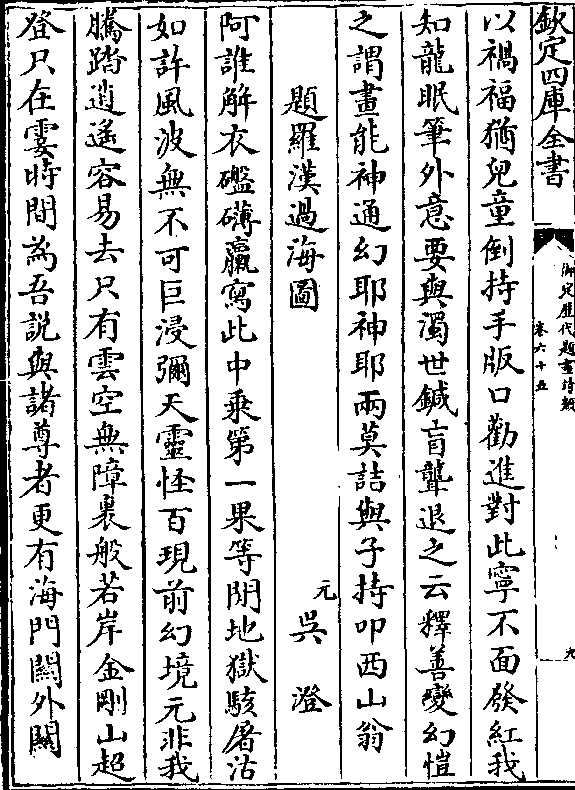 欽定四庫全書
御定歷代題畫詩類
卷六十五
九
以禍福猶兒童倒持手版口勸進對此寧不面發紅我
知龍眠筆外意要與濁世鍼盲聾退之云釋善變幻愷
之謂畫能神通幻耶神耶兩莫詰與子持叩西山翁
題羅漢過海圖
元吳澄
阿誰解衣礚礴臝寫此中乘第一果等閒地獄駭屠沽
如許風波無不可巨浸彌天靈怪百現前幻境元非我
騰踏逍遙容易去只有雲空無障裹般若岸金剛山超
登只在霎時間為吾説與諸尊者更有海門關外關